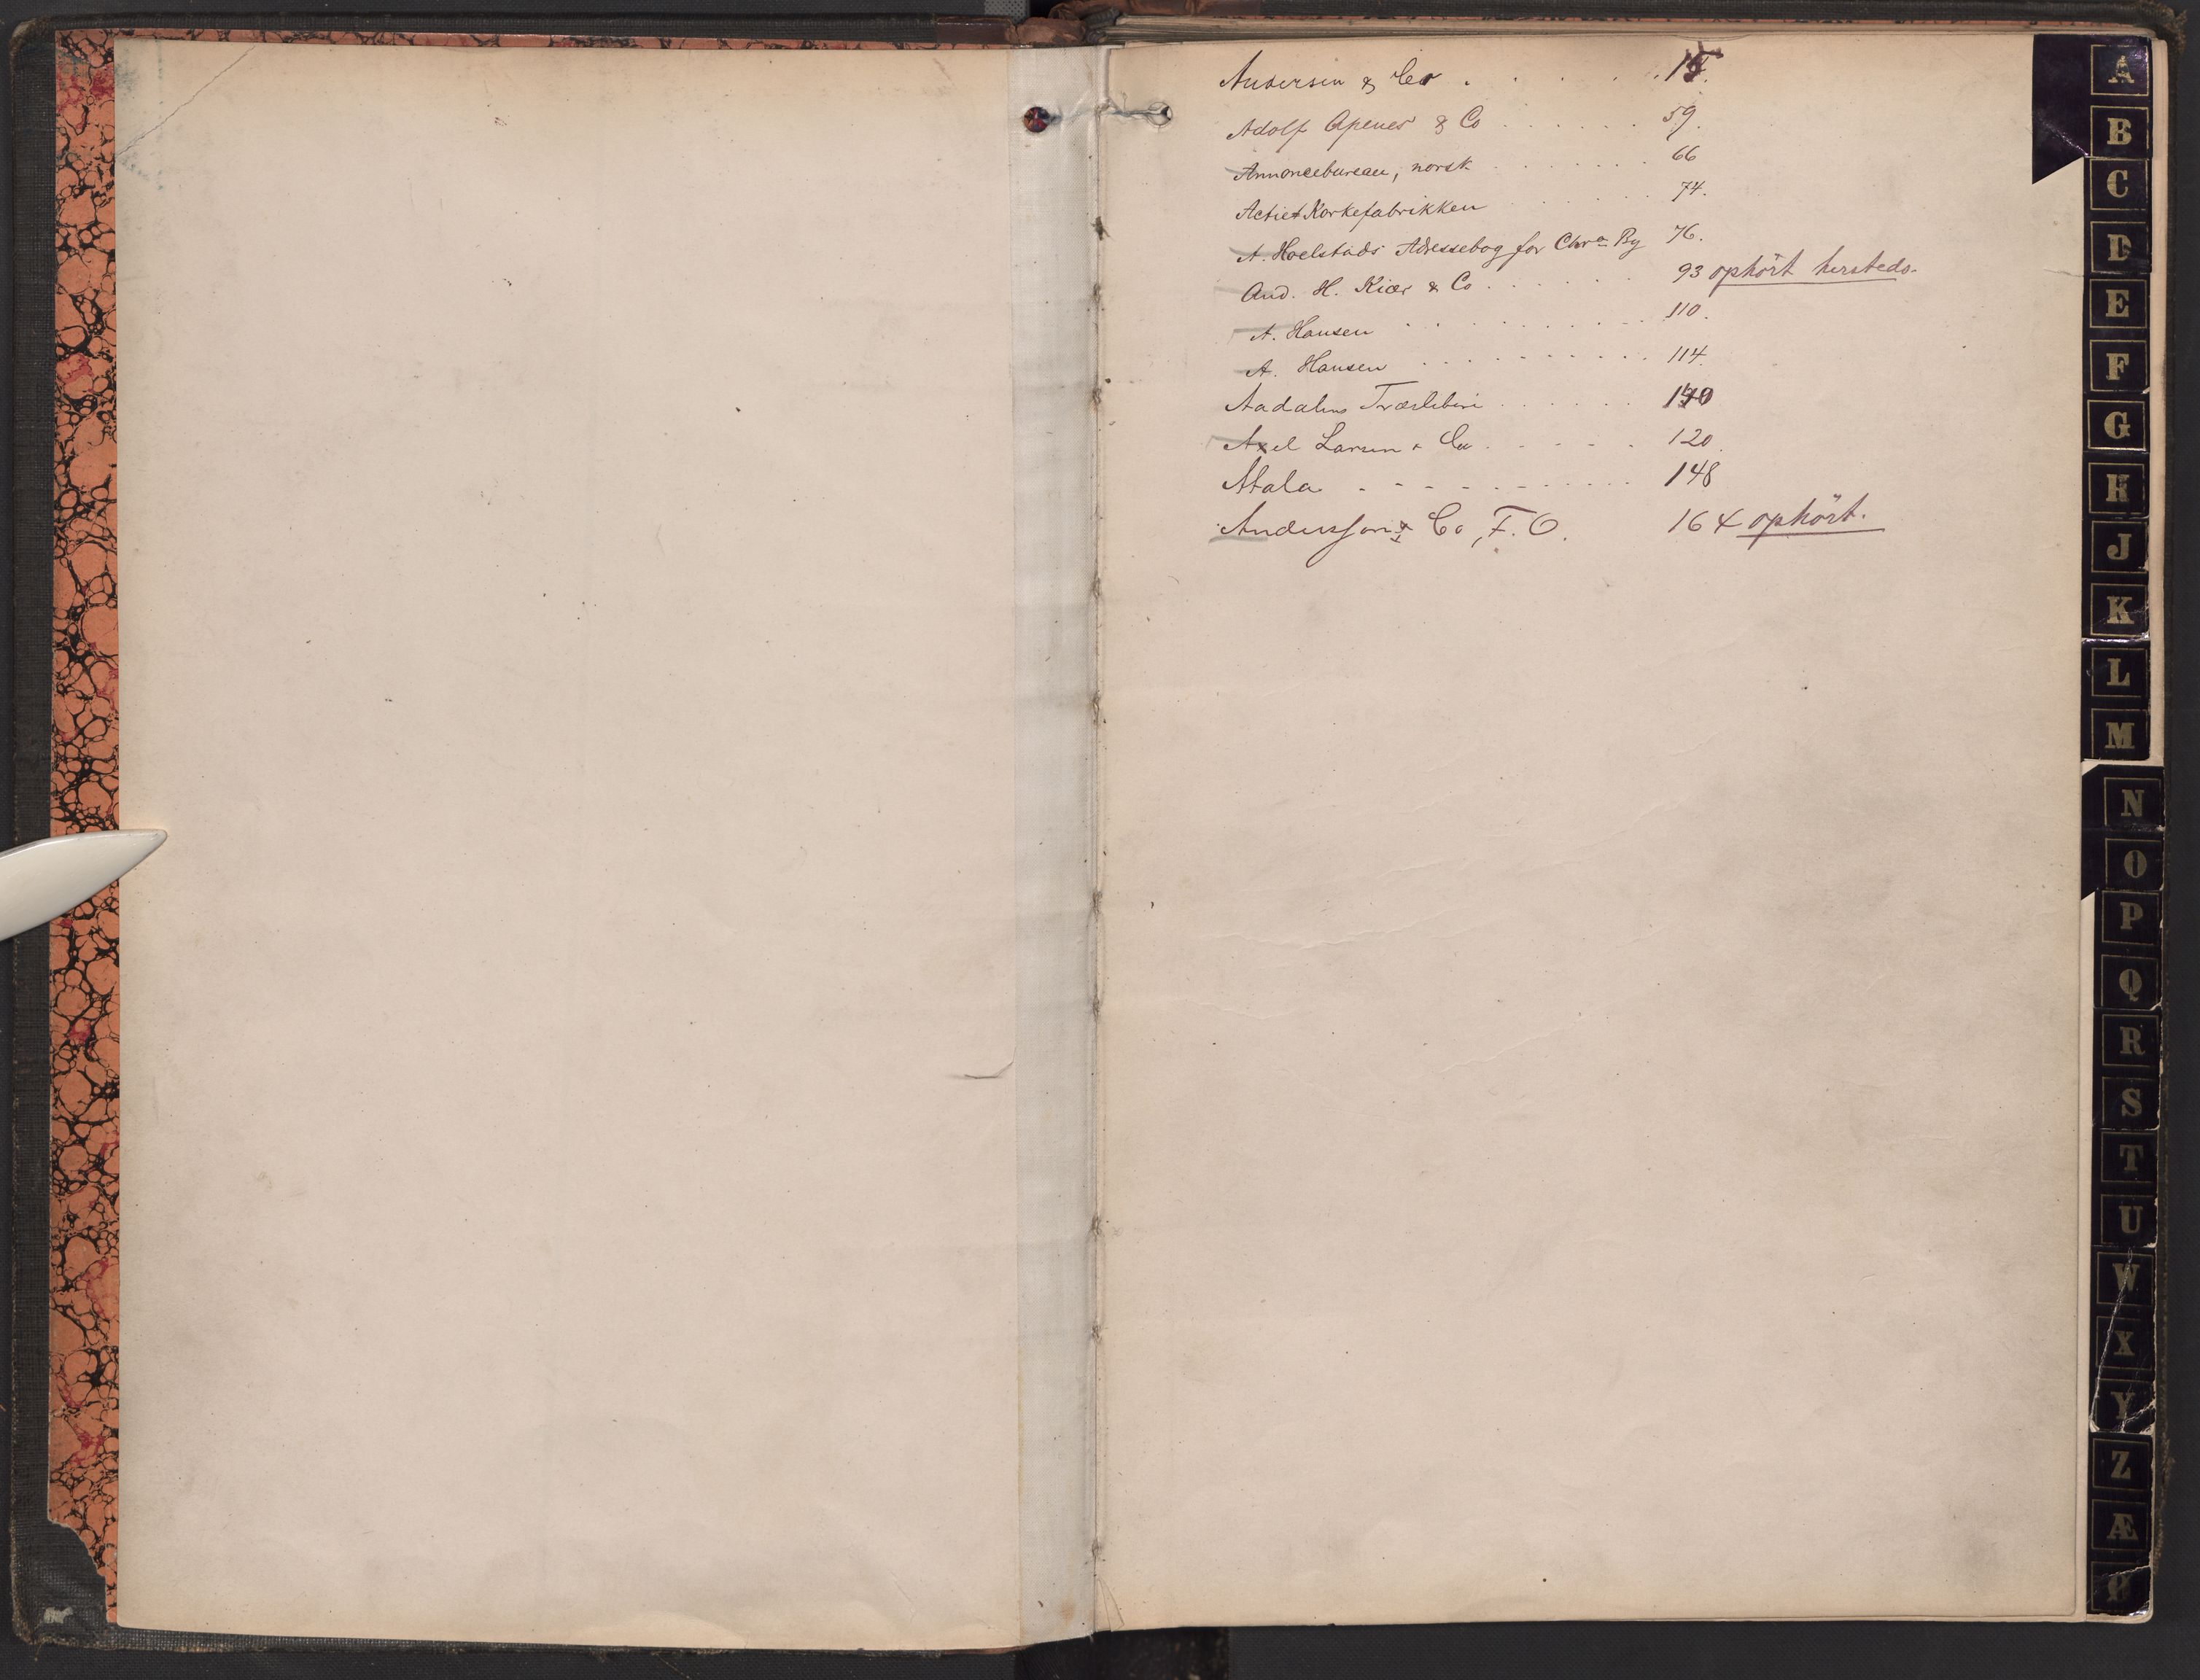 Andersen & Co . . . . . 15.
Adolf Apenes & Co . . . . . . 59.
Annoncebureau, norsk . . . . . . . 66
Actie Korkefabrikken . . . . . . . 74.
A. Hoelstads Adressebog for Chra By 76.
And. H. Kiær & Co . . . . . . 93 ophört hersteds.
A. Hansen . . . . . . . . . . 110.
A. Hansen . . . . . . . . . . 114.
Aadalens Træsliberi . . . . . . 140
Axel Larsen & Co . . . . . 120
Atala . . . . . . . . . . 148
Andersson & Co, F. O. 164 ophört.
A
B
C
D
E
F
G
H
J
K
L
M
N
O
P
Q
R
S
T
U
W
X
Y
Z
Æ
Ø